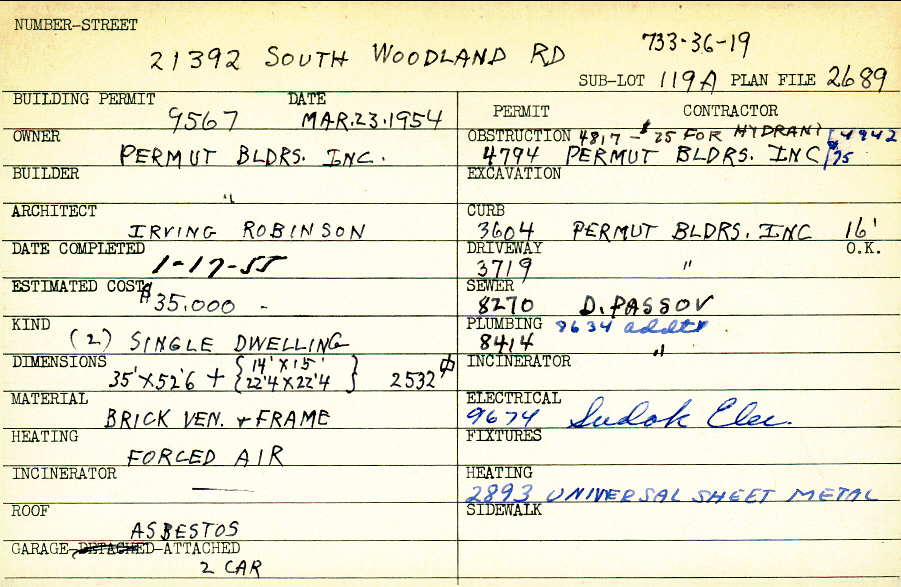 NUMBER-STREET
21392 SOUTH WOODLAND RD 733-36-19
SUB-LOT 119A PLAN FILE 2689
BUILDING PERMIT DATE
9567 MAR.23.1954
OWNER
PERMUT BLDRS. INC.
BUILDER
"
ARCHITECT
IRVING ROBINSON
DATE COMPLETED
1-17-55
ESTIMATED COST
$35.000 -
KIND
(2) SINGLE DWELLING
DIMENSIONS
35'X52'6 + {14'X15' 22'4X22'4} 2532
MATERIAL
BRICK VEN. + FRAME
HEATING
FORCED AIR
INCINERATOR
—
ROOF
ASBESTOS
GARAGE-DETACHED-ATTACHED
2 CAR
PERMIT CONTRACTOR
OBSTRUCTION 4817 - $25 FOR HYDRANT 4942
4794 PERMUT BLDRS. INC $75
EXCAVATION
CURB
3604 PERMUT BLDRS. INC 16'
DRIVEWAY O.K.
3719 "
SEWER
8270 D. PASSOV
PLUMBING 8634 addt
8414 "
INCINERATOR
ELECTRICAL
9674 Sudok Elec.
FIXTURES
HEATING
2893 UNIVERSAL SHEET METAL
SIDEWALK